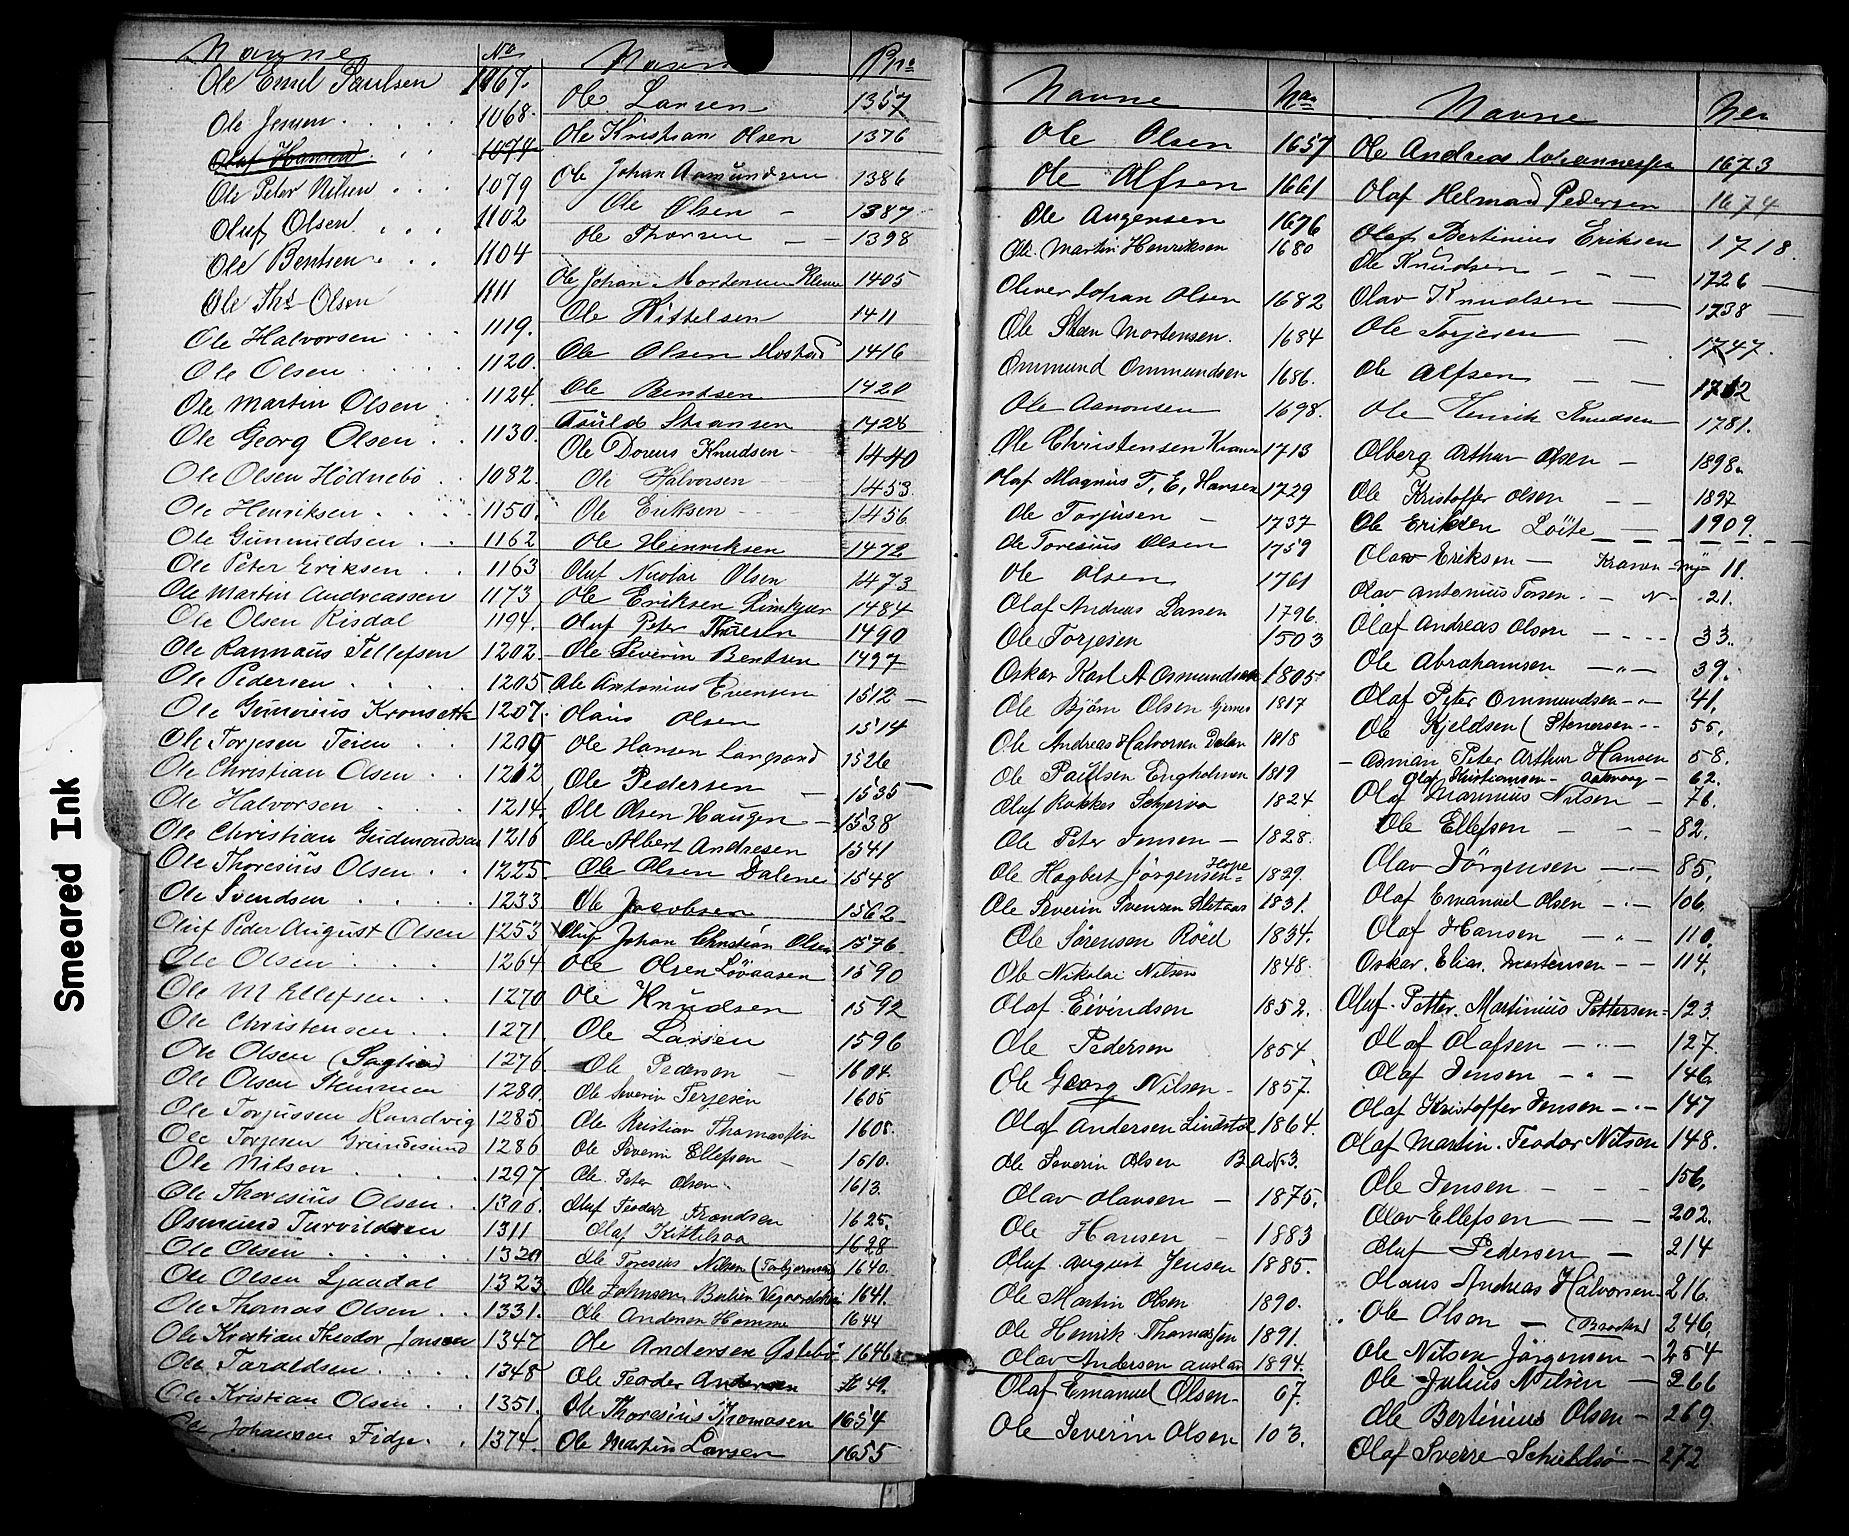 Smeared Ink
Navne No
Ole Emil Paulsen 1067.
Ole Jensen 1068.
Olaf Hansen 1074
Ole Peter Nilsen 1079
Oluf Olsen 1102
Ole Bentsen 1104
Ole Ths Olsen 1111
Ole Halvorsen 1119.
Ole Olsen 1120.
Ole Martin Olsen 1124.
Ole Georg Olsen 1130.
Ole Olsen Hödnebö 1082.
Ole Henriksen 1150.
Ole Gunnuldsen 1162
Ole Peter Eriksen 1163
Ole Martin Andreassen 1173
Ole Olsen Risdal 1194.
Ole Rasmus Tellefsen 1202
Ole Pedersen 1205
Ole Gunerius 1207.
Ole Torjesen Teien 1209
Ole Christian Olsen 1212
Ole Halvorsen 1214.
Ole Christian Gudmundsen 1216
Ole Thoresius Olsen 1225.
Ole Svendsen 1233
Oluf Peder August Olsen 1253
Ole Olsen 1264.
Ole M Ellefsen 1270
Ole Christensen 1271.
Ole Olsen 1276.
Ole Olsen 1280.
Ole Torjussen Randvig 1285.
Ole Torjesen 1286
Ole Nilsen 1297.
Ole Thoresius Olsen 1306.
Osmund 1311
Ole Olsen 1320
Ole Olsen Ljaadal 1323
Ole Thomas Olsen 1331.
Ole Kristian Theodor Jensen 1347
Ole Taraldsen 1348
Ole Kristian Olsen 1351.
Ole Johansen Fidje 1374.
Navne No
Ole Larsen 1357
Ole Kristian Olsen 1376
Ole Johan Aamundsen 1386
Ole Olsen 1387
Ole Thorsen 1398
Ole Johan Mortensen 1405
Ole Kittelsen 1411
Ole Olsen Mostad 1416
Ole Bentsen 1420
1428
Ole Knudsen 1440
Ole Halvorsen 1453
Ole Eriksen 1456
Ole Heinriksen 1472
Oluf Nicolai Olsen 1473
Ole Eriksen Limkjær 1484
Oluf Peter 1490
Ole Severin Bentsen 1497
Ole Antonius Evensen 1512
Olaus Olsen 1514
Ole Hansen Langsand 1526
Ole Pedersen 1535
Ole Olsen Haugen 1538
Ole Albert Andresen 1541
Ole Olsen Dalene 1548
Ole Jacobsen 1562
Oluf Johan Christian Olsen 1576
Ole Olsen Lövaasen 1590
Ole Knudsen 1592
Ole Larsen 1596
Ole Pedersen 1604
Ole Severin Terjesen 1605
Ole Kristian Thomassen 1608.
Ole Severin Ellefsen 1610.
Ole Peter Olsen 1613
Oluf Teodor Frandsen 1625.
Olaf Kittelsaa 1628
Ole Toresius Nilsen 1640.
Ole Johnsen 1641.
Ole Andersen Homme 1644
Ole Andersen Ystebö 1646
Ole Teodor Andersen 1649.
Ole Thoresius Thomasen 1654
Ole Martin Larsen 1655
Navne No
Ole Olsen 1657
Ole Alfsen 1661
Ole Augensen 1676
Ole Martin Henriksen 1680
Oliver Johan Olsen 1682
Ole Sten Mortensen. 1684
Ommund Ommundsen 1686.
Ole Aanonsen 1698.
Ole Christensen 1713
Olaf Magnus T. E. Hansen 1729
Ole Torjusen 1737
Ole Toresius Olsen 1759
Ole Olsen 1761
Olaf Andreas Larsen 1796.
Ole Torjesen 1503
Oskar Karl A Osmundsen 1805
Ole Björn Olsen 1817
Ole Andreas Halvorsen Dalen 1818
Ole Paulsen Engholmen 1819
Oluf 1824
Ole Peter Jensen 1828.
Ole Hagbert Jörgensen Hope 1829.
Ole Severin Svensen 1831.
Ole Sörensen Röed 1834.
Ole Nikolai Nilsen 1848.
Olaf Eivindsen 1852.
Ole Pedersen 1854.
Ole Georg Nilsen 1857.
Olaf Andersen 1864.
Ole Severin Olsen
Olav Olausen 1875.
Ole Hansen 1883
Olaf August Jensen 1885.
Ole Martin Olsen 1890.
Ole Henrik Thomassen 1891.
Olav Andersen 1894.
Olaf Emanuel Olsen 67.
Ole Severin Olsen 103.
Navne
Ole Andreas Johannessen 1673
Olaf Helmar Pedersen 1674
Olaf Bertinius Eriksen 1718.
Ole Knudsen 1726
Olav Knudsen 1738
Ole Torjesen 1747.
Ole Alfsen 1762
Ole Henrik Knudsen 1781.
Olberg Arthur Olsen 1898.
Ole Kristoffer Olsen 1897
Ole Eriksen Löite 1909.
Olav Eriksen 11.
Olav Antonius Torsen 21.
Olaf Andreas Olsen 33.
Ole Abrahamsen 39.
Olaf Peter Ommundsen 41.
Ole Kjeldsen (Stenersen 55.
Osman Peter Arthur Hansen 58.
Olaf Kristiansen 62.
Olaf Marinius Nilsen 76.
Ole Ellefsen 82.
Olav Jörgensen 85.
Olaf Emanuel Olsen 106.
Olaf Hansen 110.
Oskar Elias Mortensen 114.
Oluf Petter Martinius Pettersen 123.
Olaf Olafsen 127.
Olaf Jensen 146.
Olaf Kristoffer Jensen 147
Olaf Martin Teodor Nilsen 148.
Ole Jensen 156.
Olav Ellefsen 202.
Oluf Pedersen 214
Olaus Andreas Halvorsen 216.
Ole Olsen 246
Ole Nilsen Jörgensen 254
Ole Julius Nilsen 266
Ole Bertinius Olsen 269.
Olaf Sverre 272